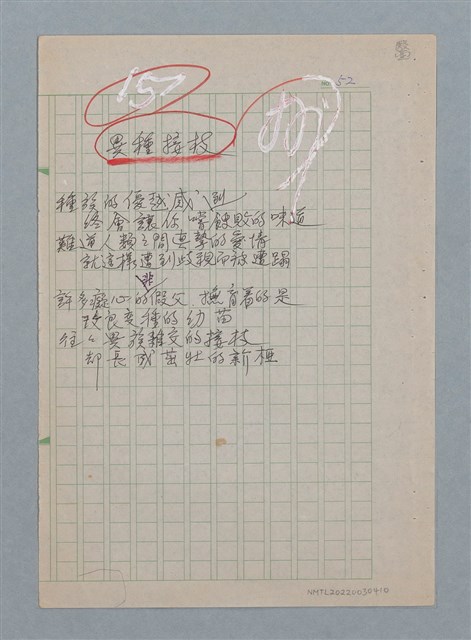 157
NO. 52
異種接枝
種族的優越感 到
終會讓你嚐蝕敗的味道
難道人類之間真摯的愛情
就這樣遭到歧視而被遭蹋
非
許多癡心的假父 撫育著的是
改良变種的幼苗
往々異族雜交的接枝
却長成茁壯的新種
NMTL20220030410